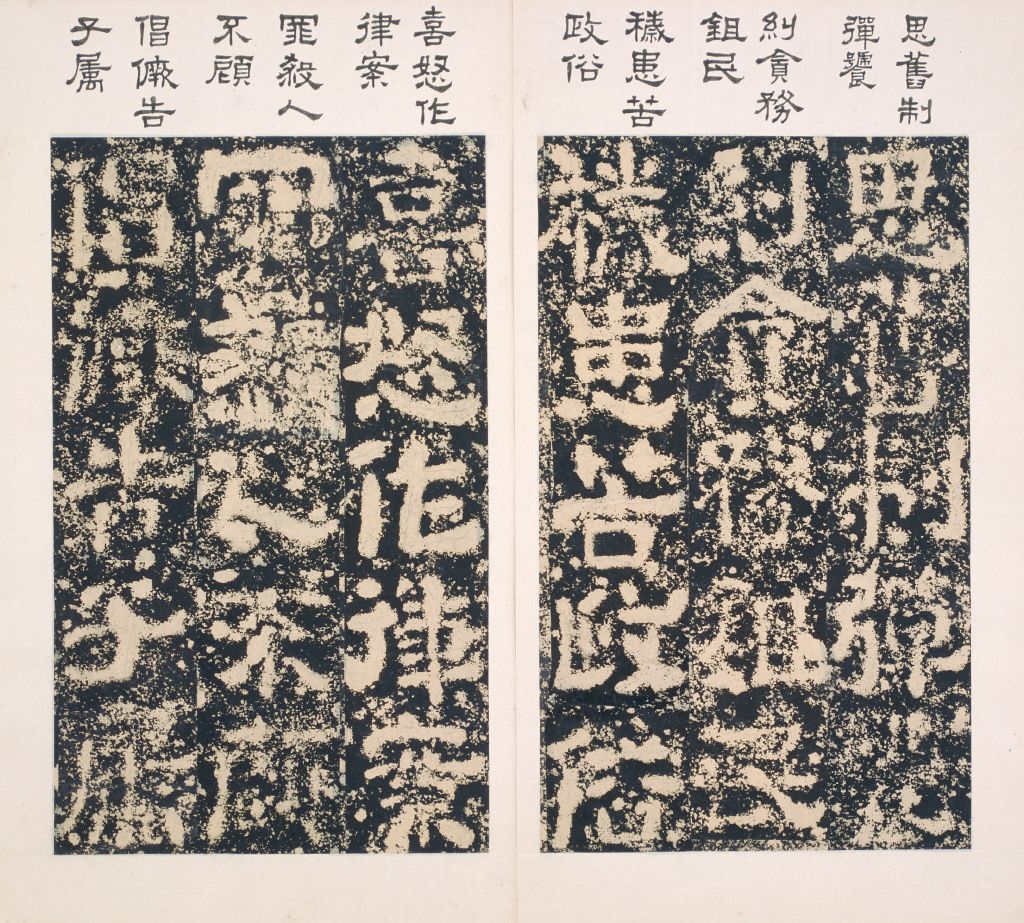 思舊制
彈饕
糾貪務
鉏民
穢患苦
政俗
喜怒作
律案
罪殺人
不顧
倡告
子屬
思舊制彈饕
糾貪務鉏民
穢患苦政俗
喜怒作律案
罪殺人不顧
倡告子屬